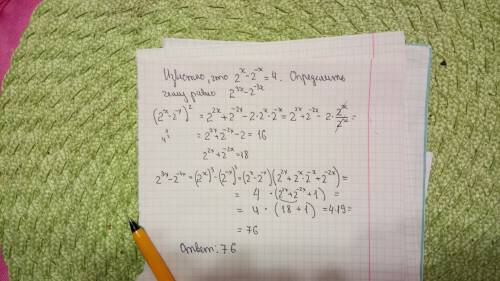 Известно, что 2^x - 2^-x = 4. Определить
чему равно 2^3x - 2^-3x
(2^x - 2^-x)^2 = 2^2x + 2^-2x - 2·2^x·2^-x = 2^2x + 2^-2x - 2· 2^x/2^x =
4^2
= 2^2x + 2^-2x - 2 = 16
2^2x + 2^-2x = 18
2^3x - 2^-3x = (2^x)^3 - (2^-x)^3 = (2^x - 2^-x)(2^2x + 2^x·2^-x + 2^-2x) =
= 4 · (2^2x + 2^-2x + 1) =
= 4 · (18 + 1) = 4·19 =
= 76
Ответ: 76